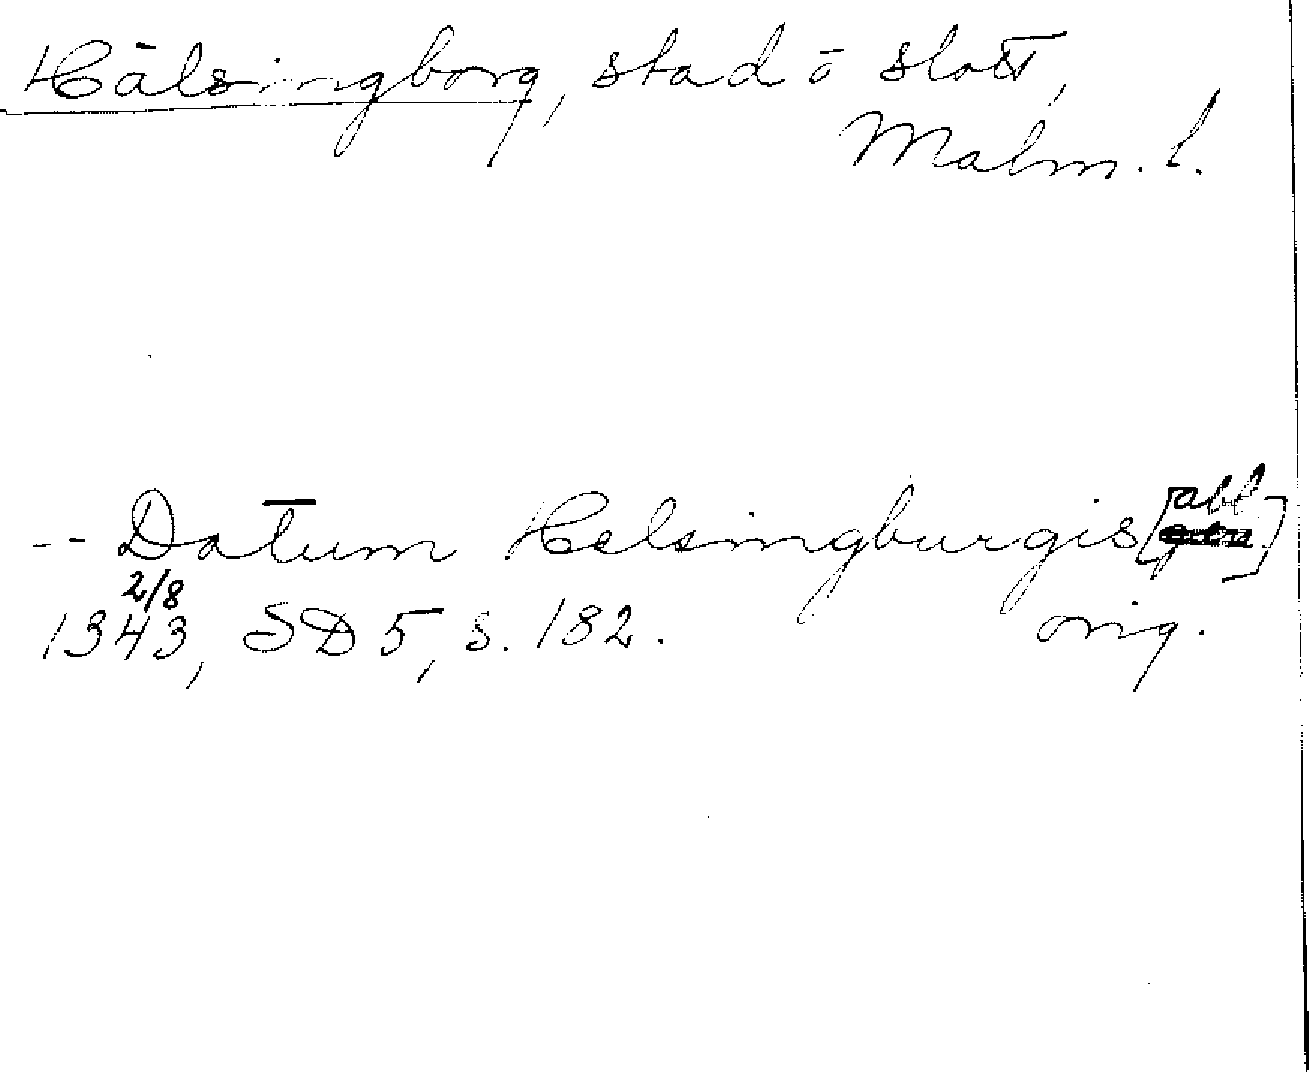 Hälsingborg, stad o slott,
Malm. l.
-- Datum Helsingburgis [abl]
2/8
1343, SD 5, s. 182. orig.